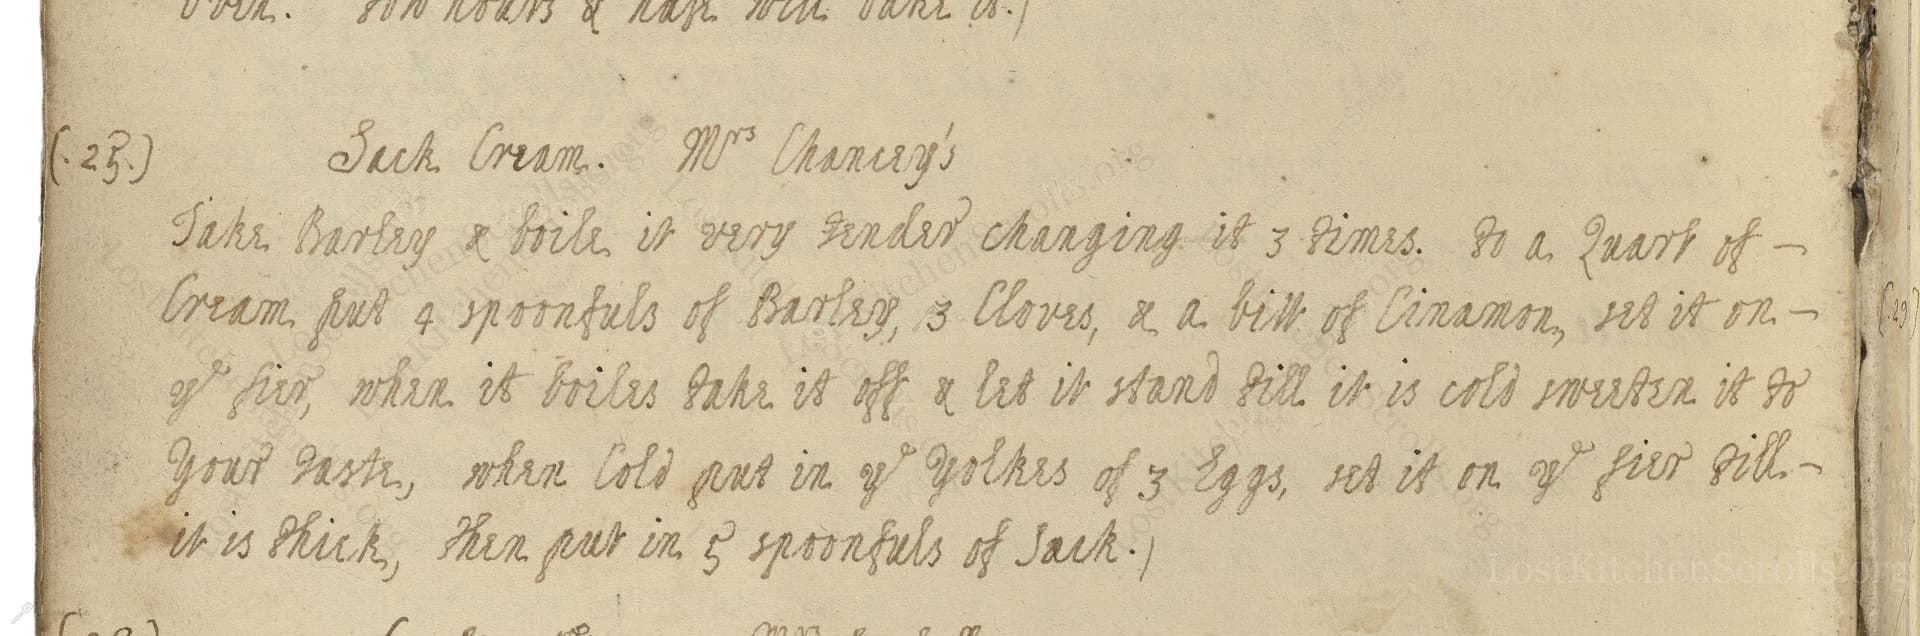 oven. Two hours & half will bake it.)
(.25.) Sack Cream. Mrs Chancey's
Take Barley & boile it very tender changing it 3 times. to a Quart of –
Cream put 4 spoonfuls of Barley, 3 Cloves, & a bitt of Cinamon, set it on –
ye fier, when it boiles take it off & let it stand till it is cold sweeten it to
Your taste, when Cold put in ye Yolkes of 3 Eggs, set it on ye fier till –
it is thick, then put in 5 spoonfuls of Sack.)
(.29)
LostKitchenScrolls.org